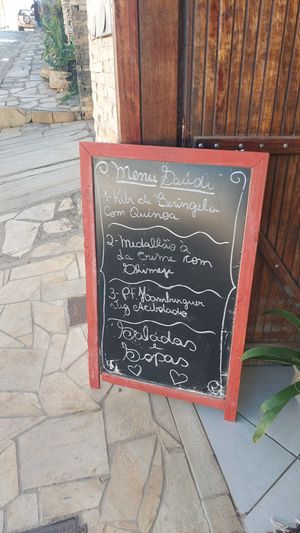 Menu Saúdi
1-Kibi di Beringela
Com Quinoa
2-Medalhão à
La Creme com
Shimeji
3-P.F. Hamburguer
Vig Acebolado
Saladas
e
Sopas